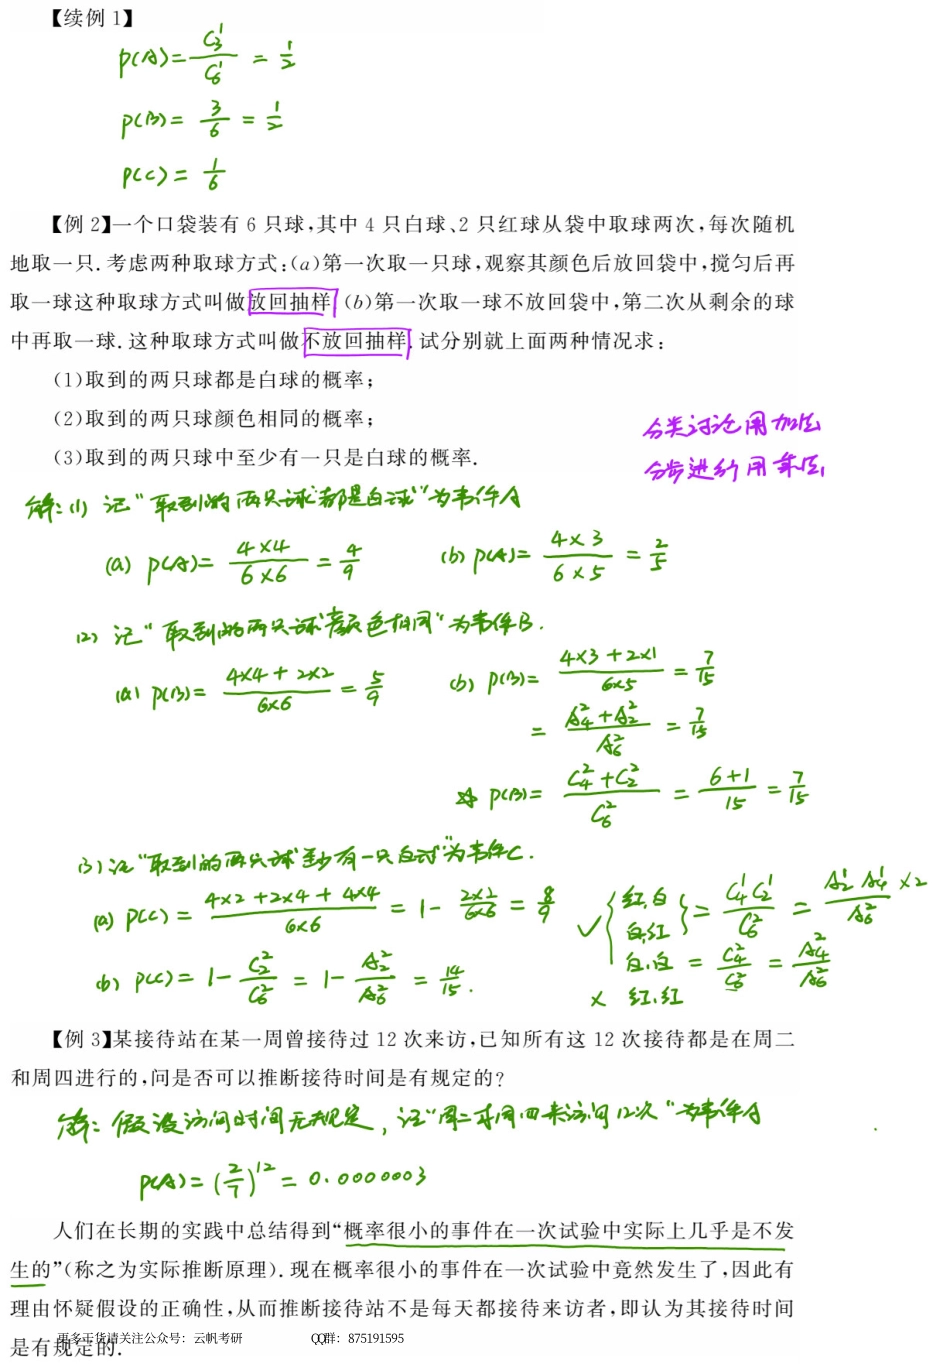 【续例 1】
P(A)= C₃¹/C₆¹ = 1/2
P(B)= 3/6 = 1/2
P(C)= 1/6
【例 2】一个口袋装有 6 只球,其中 4 只白球、2 只红球从袋中取球两次,每次随机
地取一只. 考虑两种取球方式:(a)第一次取一只球,观察其颜色后放回袋中,搅匀后再
取一球这种取球方式叫做放回抽样 (b)第一次取一球不放回袋中,第二次从剩余的球
中再取一球. 这种取球方式叫做不放回抽样. 试分别就上面两种情况求:
(1)取到的两只球都是白球的概率;
(2)取到的两只球颜色相同的概率;
(3)取到的两只球中至少有一只是白球的概率.
分类讨论用加法
分步进行用乘法
解:(1) 记“取到的两只球都是白球”为事件A
(a) P(A)= 4×4/6×6 = 4/9 (b) P(A)= 4×3/6×5 = 2/5
(2) 记“取到的两只球颜色相同”为事件B.
(a) P(B)= 4×4+2×2/6×6 = 5/9 (b) P(B)= 4×3+2×1/6×5 = 7/15
= A₄²+A₂²/A₆² = 7/15
☆ P(B)= C₄²+C₂²/C₆² = 6+1/15 = 7/15
(3) 记“取到的两只球至少有一只白球”为事件C.
(a) P(C)= 4×2+2×4+4×4/6×6 = 1- 2×2/6×6 = 8/9
(b) P(C)= 1- C₂²/C₆² = 1- A₂²/A₆² = 14/15.
✓ { 红.白 白.红 } = C₄¹C₂¹/C₆² = A₂¹A₄¹×2/A₆²
白.白 = C₄²/C₆² = A₄²/A₆²
× 红.红
【例 3】某接待站在某一周曾接待过 12 次来访,已知所有这 12 次接待都是在周二
和周四进行的,问是否可以推断接待时间是有规定的?
解: 假设访问时间无规定, 记“周二或周四来访问12次”为事件A
P(A)= (2/7)¹² = 0.0000003
人们在长期的实践中总结得到“概率很小的事件在一次试验中实际上几乎是不发
生的”(称之为实际推断原理). 现在概率很小的事件在一次试验中竟然发生了,因此有
理由怀疑假设的正确性,从而推断接待站不是每天都接待来访者,即认为其接待时间
是有规定的.
更多干货请关注公众号：云帆考研 QQ群：875191595